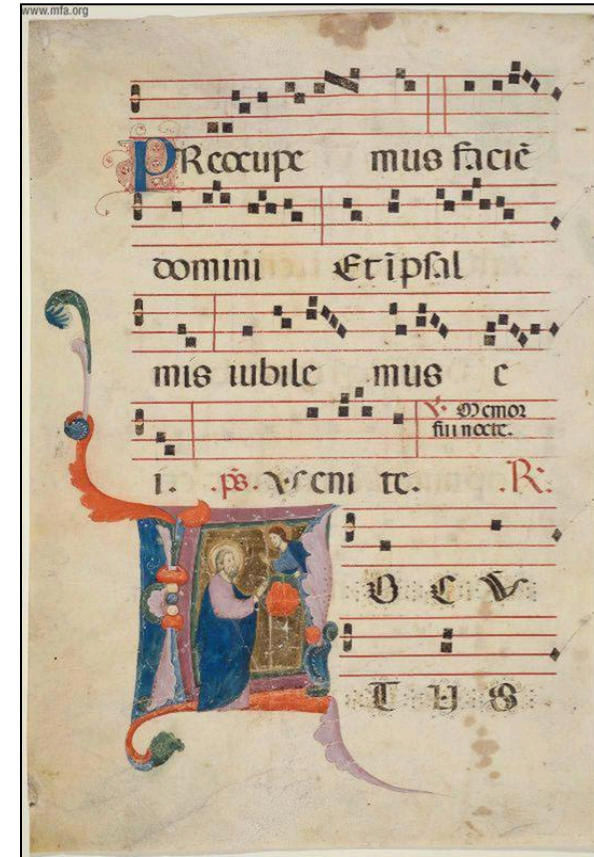 www.mfa.org
PReocupe mus faciē
domini Et ī psal
mis iubile mus e
℣. Memor
fui nocte.
i. .ps. Venite. .R.
OCV
TUS